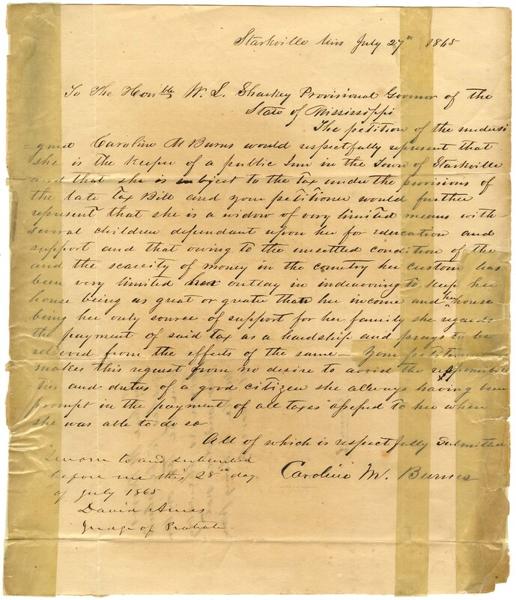 Starkville Miss July 27th 1865
To The Honble W. L. Sharkey Provisional Govnor of the
State of Mississippi
The petition of the undersi
gned Caroline M Burns would respectfully represent that
she is the Keeper of a public Inn in the Town of Starkville
and that she is subject to the tax under the provisions of
the late Tax Bill and your petitioner would further
represent that she is a widow of very limited means with
several children dependant upon her for education and
support and that owing to the unsettled condition of the
and the scarcity of money in the country her custom has
been very limited her outlay in indeavoring to keep her
house being as great or grater than her income and her house
being her only source of support for her family she regards
the payment of said tax as a hardship and prays to be
relieved from the effects of the same Your petitioner
makes this request from no desire to avoid the responsibili
ties and duties of a good citizen she allways having been
prompt in the payment of all taxes assessed to her when
she was able to do so
All of which is respectfully submitted
Sworn to and subscribed
before me this 28th day
of July 1865
David Ames
Judge of Probate
Caroline M. Burns